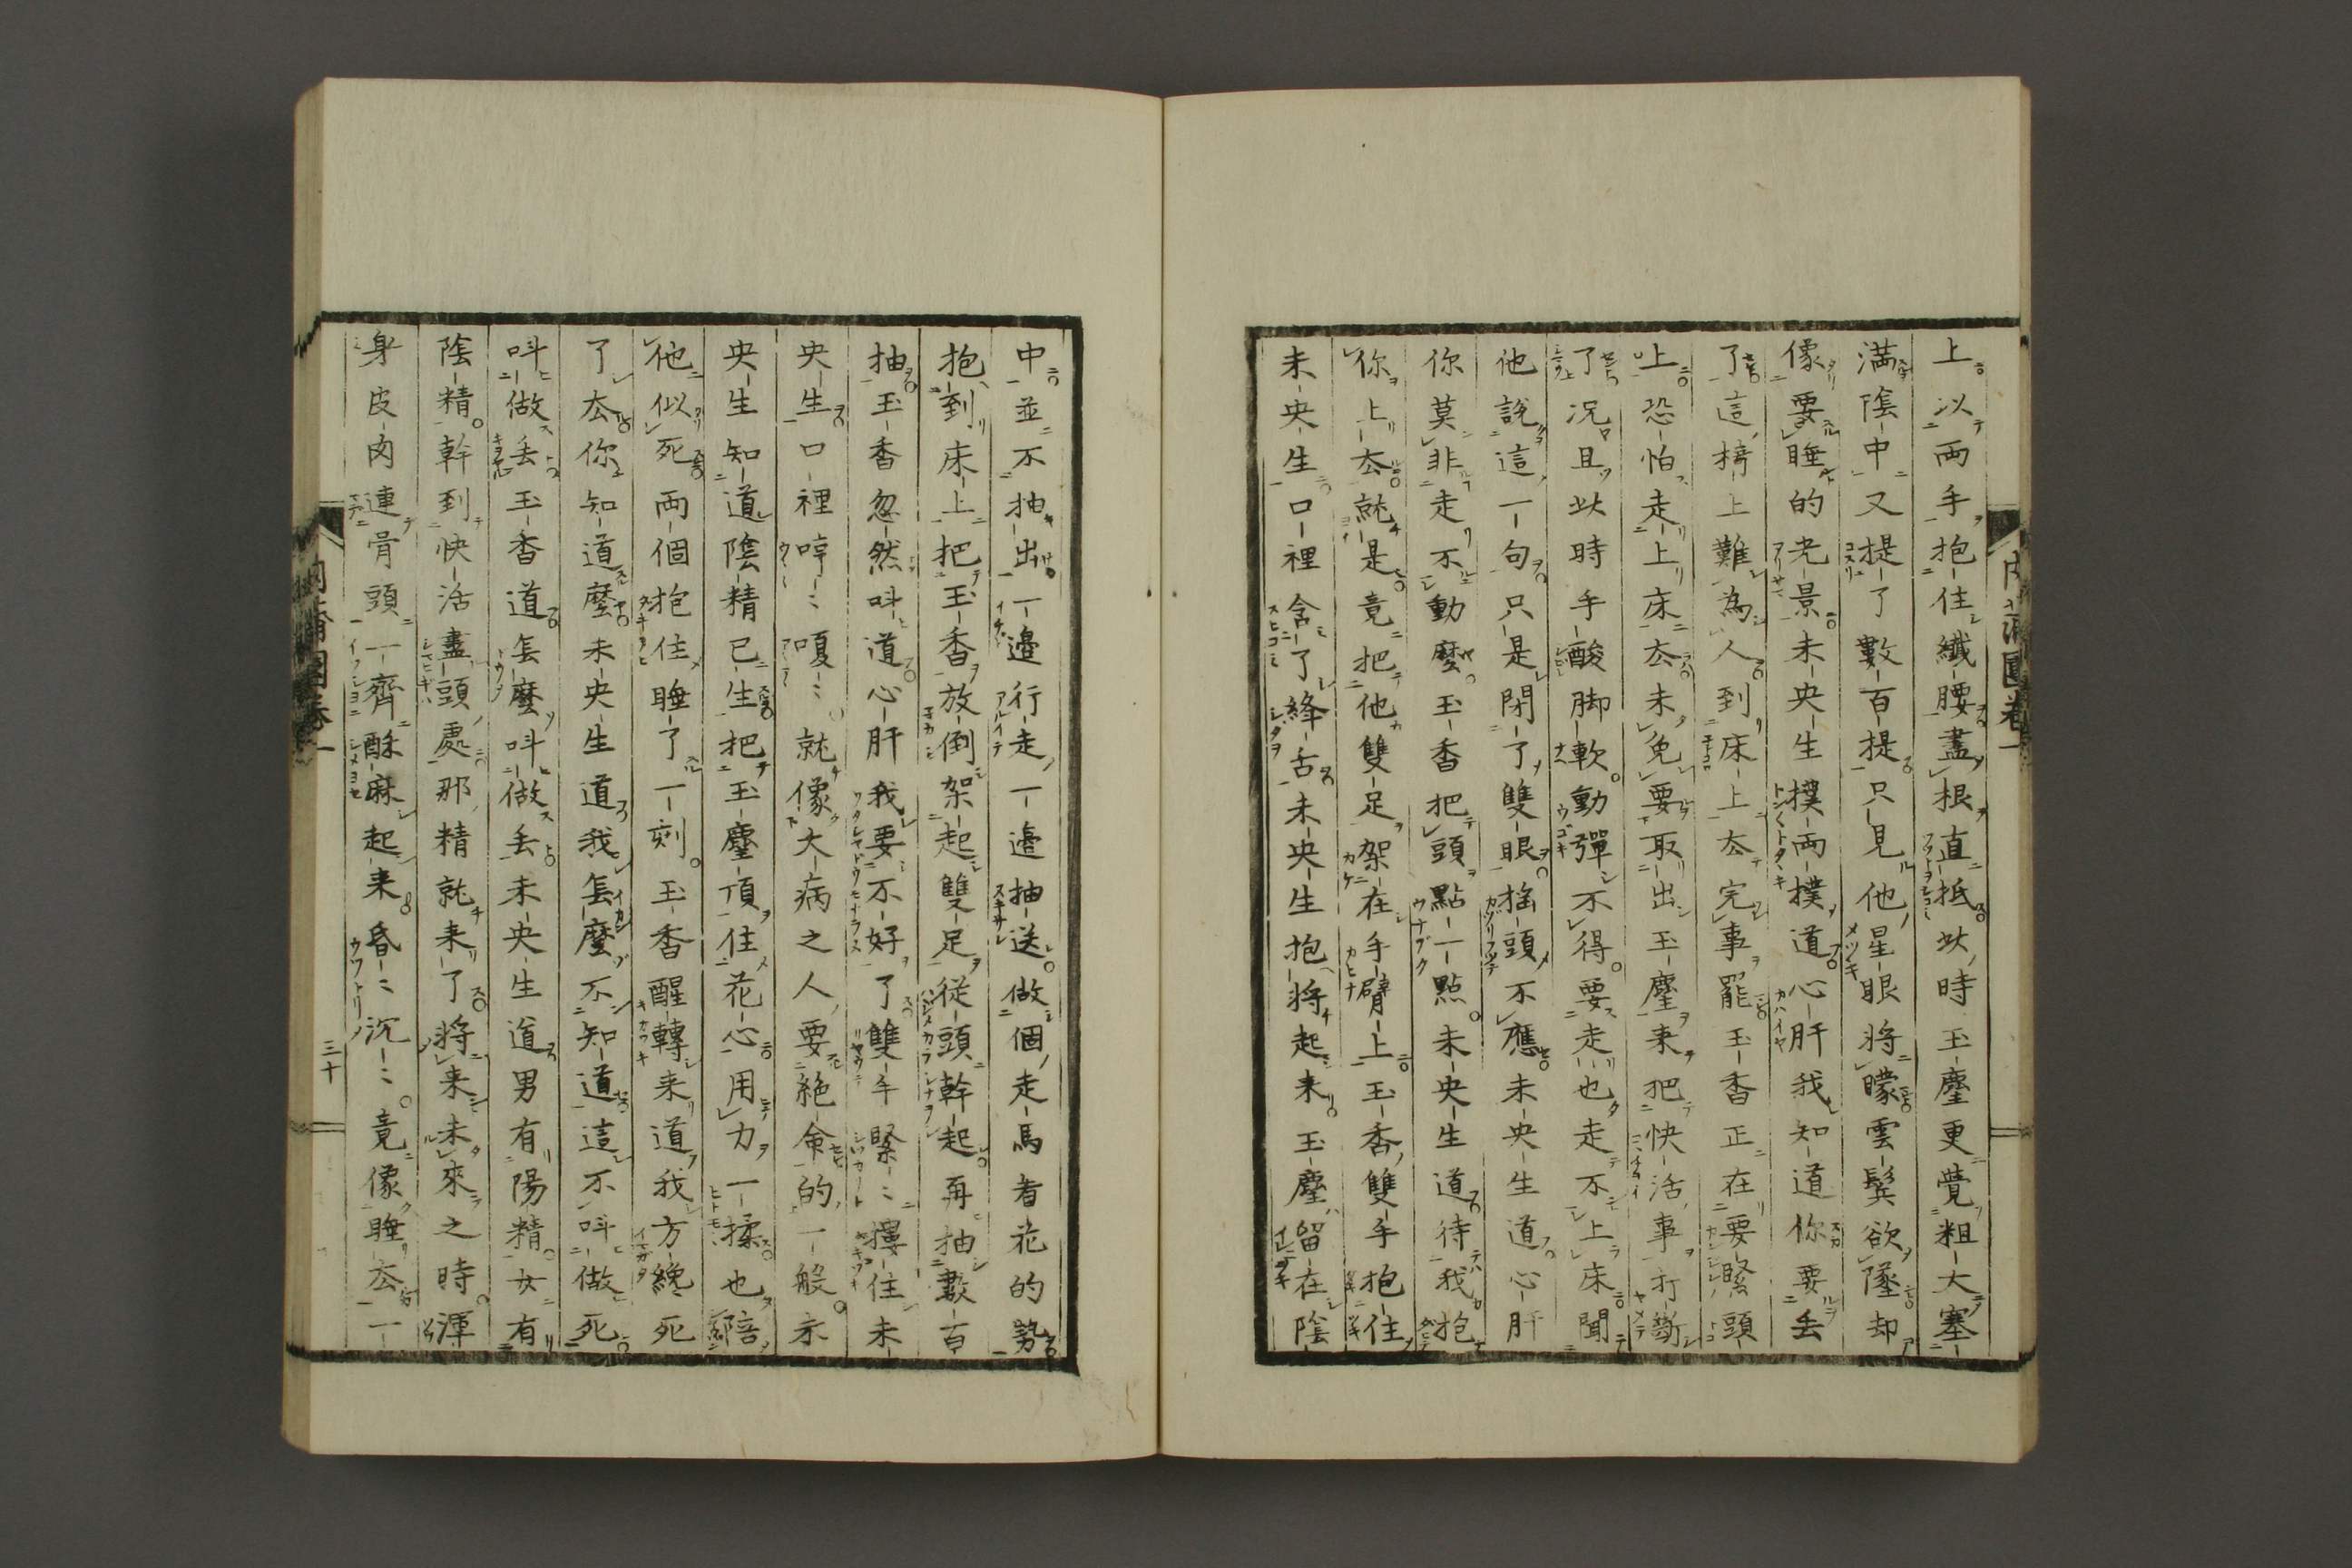 上以兩手抱住纖腰盡根直抵此時玉麈更覺粗大塞
滿陰中又提了數百提只見他星眼將矇雲鬢欲墜却
像要睡的光景未央生撲兩撲道心肝我知道你要丢
了這椅上難為人到床上去完事罷玉香正在要緊頭
上恐怕走上床去未免要取出玉麈来把快活事打斷
了况且此時手酸脚軟動彈不得要走也走不上床聞
他說這一句只是閉了雙眼搖頭不應未央生道心肝
你莫非走不動麼玉香把頭點一點未央生道待我抱
你上去就是竟把他雙足架在手臂上玉香雙手抱住
未央生口裡含了絳舌未央生抱將起来玉麈留在陰
中並不抽出一邊行走一邉抽送做個走馬看花的勢
抱到床上把玉香放倒架起雙足従頭幹起再抽數百
抽玉香忽然呌道心肝我要不好了雙手緊〻摟住未
央生口裡哼〻嗄〻就像大病之人要絶命的一般未
央生知道陰精已生把玉麈頂住花心用力一揉也陪
他似死兩個抱住睡了一刻玉香醒轉来道我方纔死
了去你知道麼未央生道我怎麼不知道這不呌做死
呌做丢玉香道怎麼呌做丢未央生道男有陽精女有
陰精幹到快活盡頭處那精就来了將来未來之時渾
身皮肉連骨頭一齊酥麻起来昏〻沉〻竟像睡去一
肉蒲團卷一
肉蒲團卷一
三十